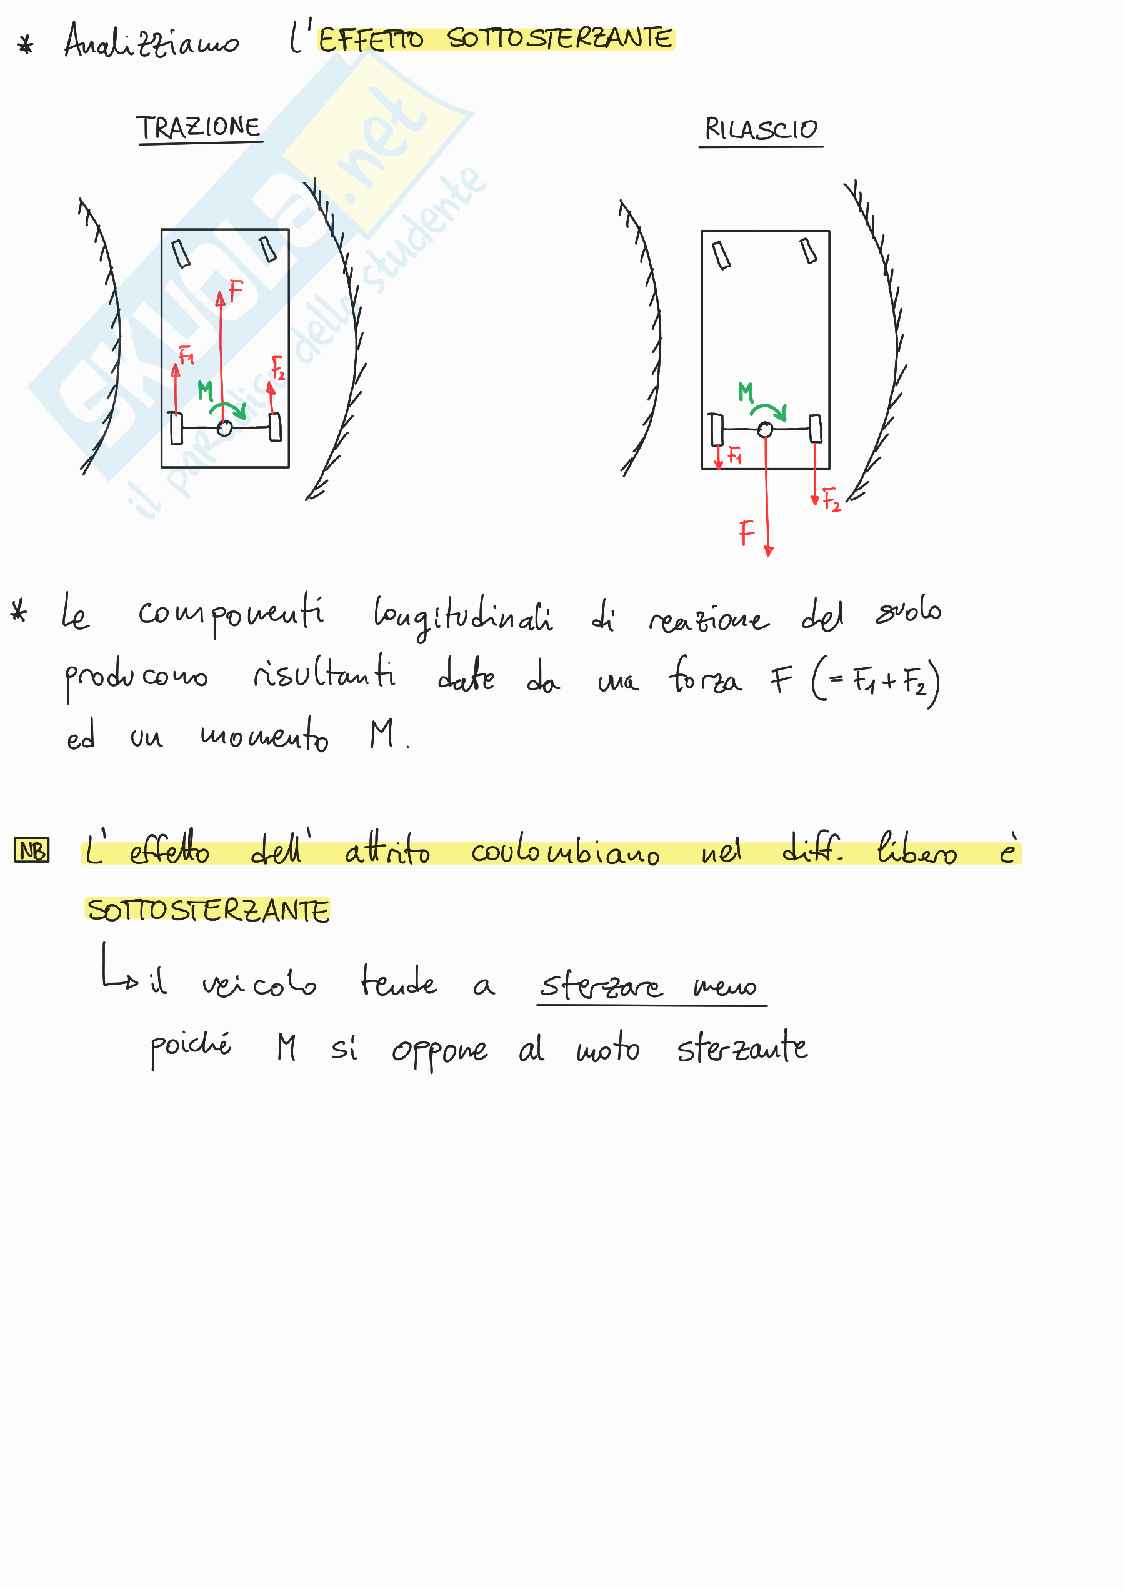 * Analizziamo l'EFFETTO SOTTOSTERZANTE
TRAZIONE
RILASCIO
F
F1
F2
M
M
F1
F2
F
* Le componenti longitudinali di reazione del suolo
producono risultanti date da una forza F (= F1 + F2)
ed un momento M.
NB L'effetto dell'attrito coulombiano nel diff. libero è
SOTTOSTERZANTE
il veicolo tende a sterzare meno
poiché M si oppone al moto sterzante
SKUOLA.net
il paradiso dello studente